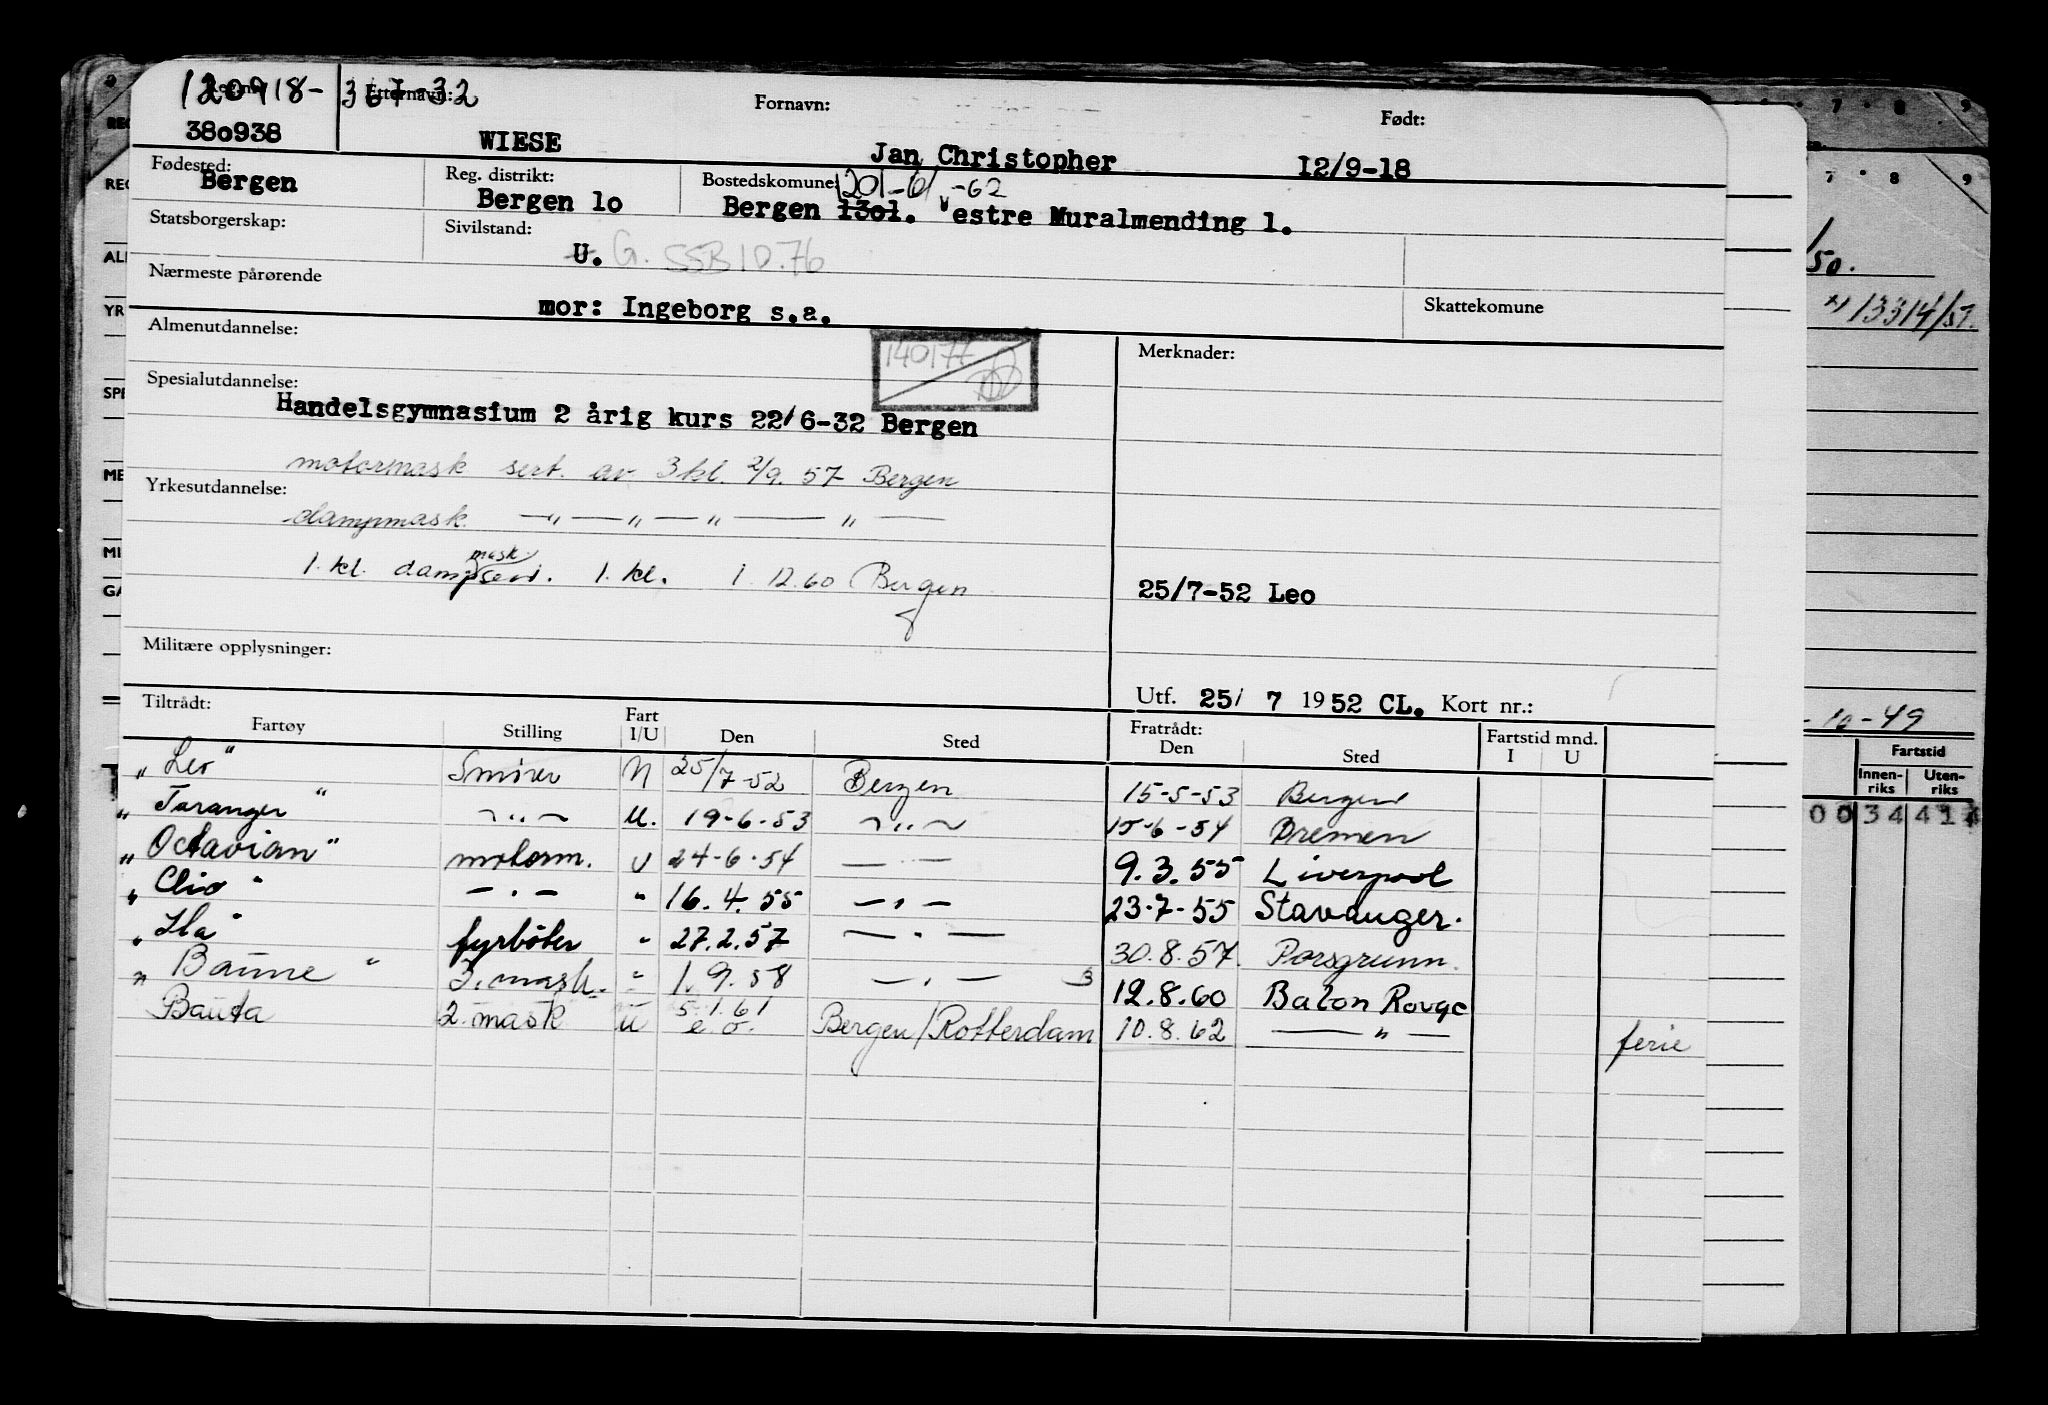 120918- 367-32
Reg. nr. Etternavn: Fornavn: Født:
380938 WIESE Jan Christopher 12/9-18
Fødested: Reg. distrikt: Bostedskomune: 1201-61-62
Bergen Bergen 1o Bergen 13o1. Vestre Muralmending 1.
Statsborgerskap: Sivilstand:
U. G. SSB 10.76
Nærmeste pårørende
mor: Ingeborg s.a. Skattekomune
Almenutdannelse: Merknader:
Spesialutdannelse:
Handelsgymnasium 2 årig kurs 22/6-32 Bergen
motormask sert. av 3 kl. 2/9. 57 Bergen
Yrkesutdannelse:
dampmask. —„—„—„—„—
1. kl. dampmasksert. 1. kl. 1.12.60 Bergen
25/7-52 Leo
Militære opplysninger:
Utf. 25/ 7 1952 CL. Kort nr.:
Tiltrådt: Fratrådt: Fartstid mnd.
Fartøy Stilling Fart I/U Den Sted Den Sted I U
„Leo" Smører N 25/7-52 Bergen 15-5-53 Bergen
„Taranger" —„— U. 19-6-53 —„— 15-6-54 Bremen
„Octavian" motorm. U 24-6-54 —„— 9.3.55 Liverpool
„Clio" —„— " 16.4.55 —„— 23-7-55 Stavanger.
„Ila" fyrböter " 27.2.57 —„— 30.8.57. Porsgrunn.
„Baune" 3. mask. " 1.9.58 —„— 12.8.60 Baton Rouge
Bauta 2. mask U 5.1.61 e o. Bergen/Rotterdam 10.8.62 —„— ferie
7 8 9
7 8 9
50.
13314/51.
-10-49
Fartstid
Innen-riks Uten-riks
00 34 414